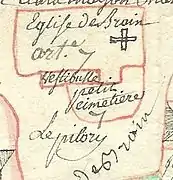 Eglise de Brain
art.e 7
vestibulle
petit
cimetière
Le pilory
de Brain